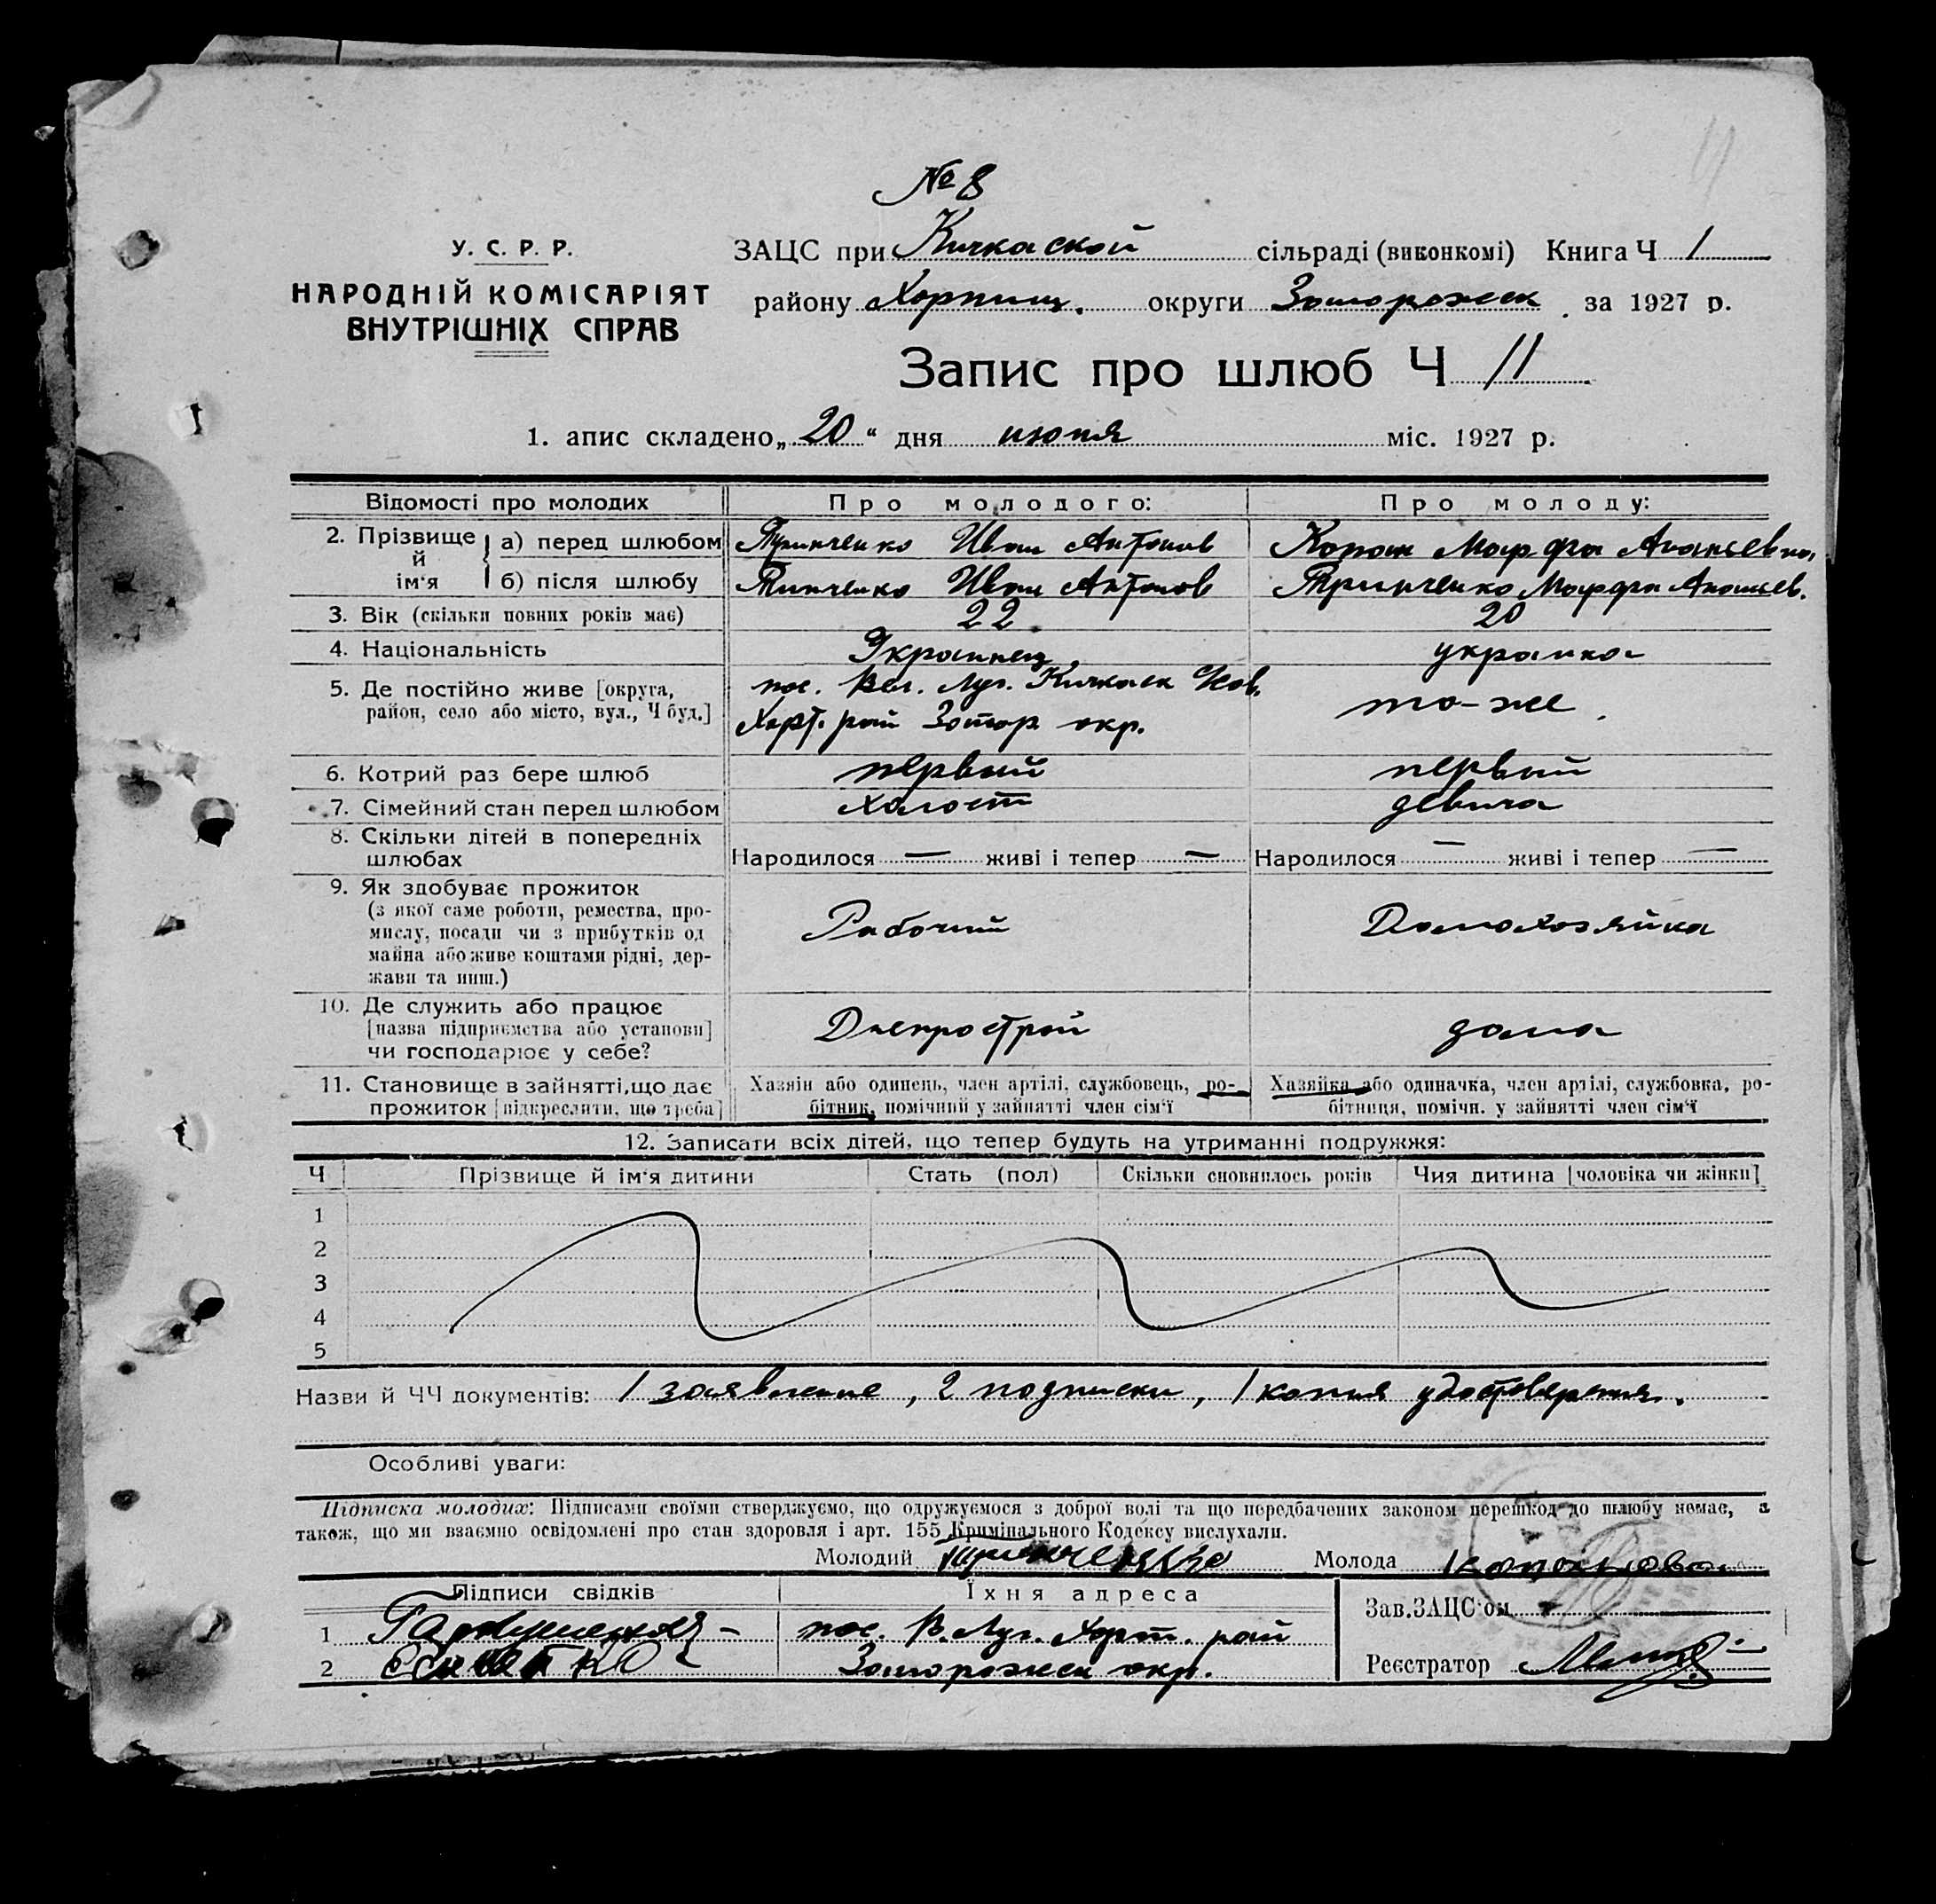 № 8
У. С. Р. Р.
НАРОДНІЙ КОМІСАРІЯТ
ВНУТРІШНІХ СПРАВ
ЗАЦС при Кичкаской сільраді (виконкомі) Книга Ч 1
району Хортиц. округи Запорожск. за 1927 р.
Запис про шлюб Ч 11
1. апис складено „20“ дня июня міс. 1927 р.
Відомості про молодих Про молодого: Про молоду:
2. Прізвище й ім'я а) перед шлюбом Тринченко Иван Антонов Марфа Ананьевна
б) після шлюбу Тинченко Иван Антонов Тринченко Марфа Ананьев.
3. Вік (скільки повних років має) 22 20
4. Національність Украинец украинка
5. Де постійно живе [округа, район, село або місто, вул., Ч буд.] пос. Вел. Луг. Кичкаск
Хорт. рай Запор окр. то-же
6. Котрий раз бере шлюб первый первый
7. Сімейний стан перед шлюбом холост девица
8. Скільки дітей в попередніх шлюбах Народилося — живі і тепер — Народилося — живі і тепер —
9. Як здобуває прожиток
(з якої саме роботи, ремества, про-
мислу, посади чи з прибутків од
майна або живе коштами рідні, дер-
жави та инш.) Рабочий Домохозяйка
10. Де служить або працює
[назва підприємства або установи]
чи господарює у себе? Днепрострой дома
11. Становище в зайнятті, що дає
прожиток [підкреслити, що треба]
Хазяін або одинець, член артілі, службовець, ро-
бітник, помічний у зайнятті член сім'ї
Хазяйка або одиначка, член артілі, службовка, ро-
бітниця, помічн. у зайнятті член сім'ї
12. Записати всіх дітей, що тепер будуть на утриманні подружжя:
Ч Прізвище й ім'я дитини Стать (пол) Скільки сповнилось років Чия дитина [чоловіка чи жінки]
1
2
3
4
5
Назви й ЧЧ документів: 1 заявление, 2 подписки, 1 копия удостоверения.
Особливі уваги:
Підписка молодих: Підписами своїми стверджуємо, що одружуємося з доброї волі та що передбачених законом перешкод до шлюбу немає, а
також, що ми взаємно освідомлені про стан здоровля і арт. 155 Кримінального Кодексу вислухали.
Молодий Тринченко Молода
Підписи свідків Їхня адреса Зав. ЗАЦС'ом
1 пос. В. Луг. Хорт. рай
2 Запорожск окр. Реєстратор